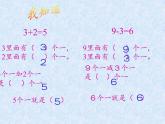 我知道
3+2=5
3里面有(3)个一,
2里面有(2)个一,
3个一加2个一
是(5)个一,
5个一就是(5)
9-3=6
9里面有(9)个一,
3里面有(3)个一,
9个一减3个一
是(6)个一,
6个一就是(6)